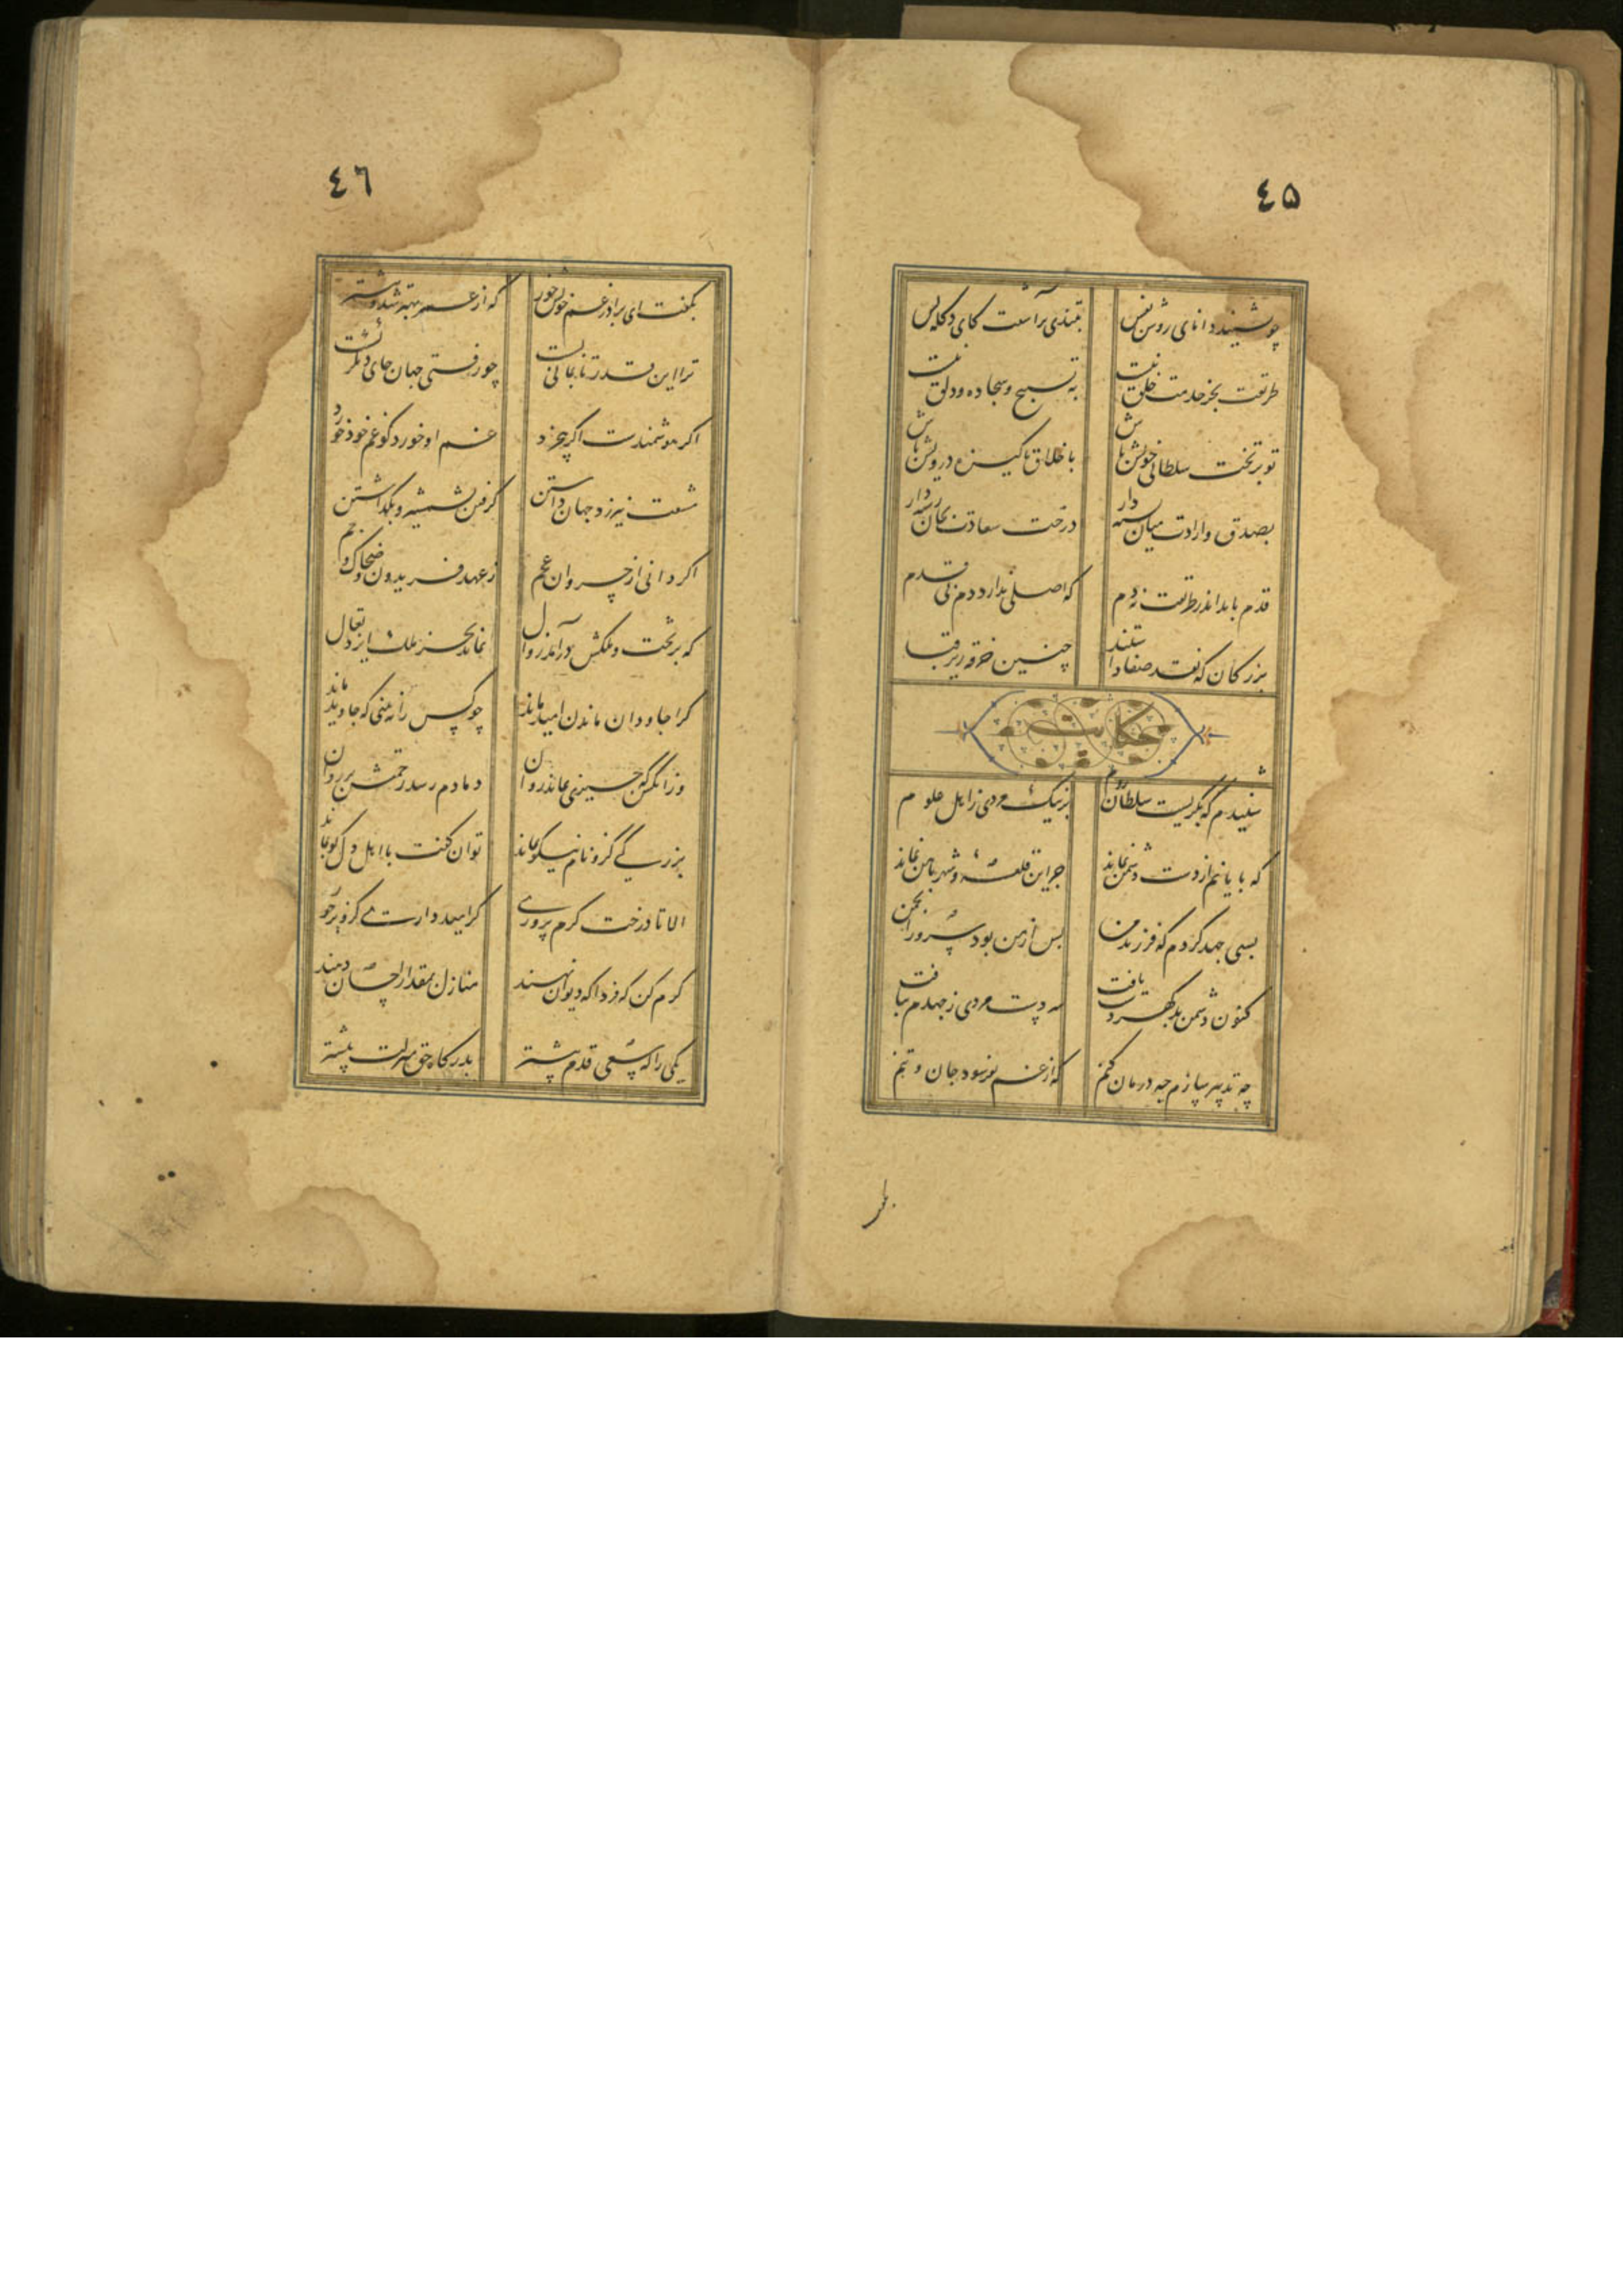 ٤۵
چو بشنید دانای روشن نفس بتندی برآشفت کای دکله بس
طریقت بجز خدمت خلق نیست به تسبیح و سجاده و دلق نیست
تو بر تخت سلطانی خویش باش باخلاق پاکیزه درویش باش
بصدق و ارادت میان بسته دار
قدم باید اندر طریقت نه دم که اصلی ندارد دم بی قدم
بزرگان که نقد صفا داشتند چنین خرقه زیر قبا
حکایت
شنیدم که بگریست سلطان روم بر نیک مردی ز اهل علوم
که پایانم از دست دشمن نماند جز این قلعه و شهر با من نماند
بسی جهد کردم که فرزند من پس از من بود سرور انجمن
کنون دشمن بدگهر دست یافت سر دست مردی ز جهدم بتافت
چه تدبیر سازم چه درمان کنم که از غم بفرسود جان و تنم
٤٦
بگفت ای برادر غم خویش خور که از عمر بهتر شد و بیشتر
ترا این قدر تا بمانی بست چو رفتی جهان جای دیگر کست
اگر هوشمندست اگر بی خرد غم او مخور کو غم خود خورد
مشقت نیرزد جهان داشتن گرفتن بشمشیر و بگذاشتن
اگر دانی از خسروان عجم ز عهد فریدون و ضحاک و جم
که بر تخت و ملکش درآمد زوال نماند بجز ملک ایزد تعال
کرا جاودان ماندن امید ماند چو کس را نه بینی که جاوید ماند
وزانکس که چیزی بماند روان دمادم رسد رحمتش بر روان
بزرگی کزو نام نیکو نماند توان گفت با اهل دل کو نماند
الا تا درخت کرم پروری گر امیدواری کزو بر خوری
کرم کن که فردا که دیوان نهند منازل بمقدار احسان دهند
یکی را که سعی قدم پیشتر بدرگاه حق منزلت بیشتر